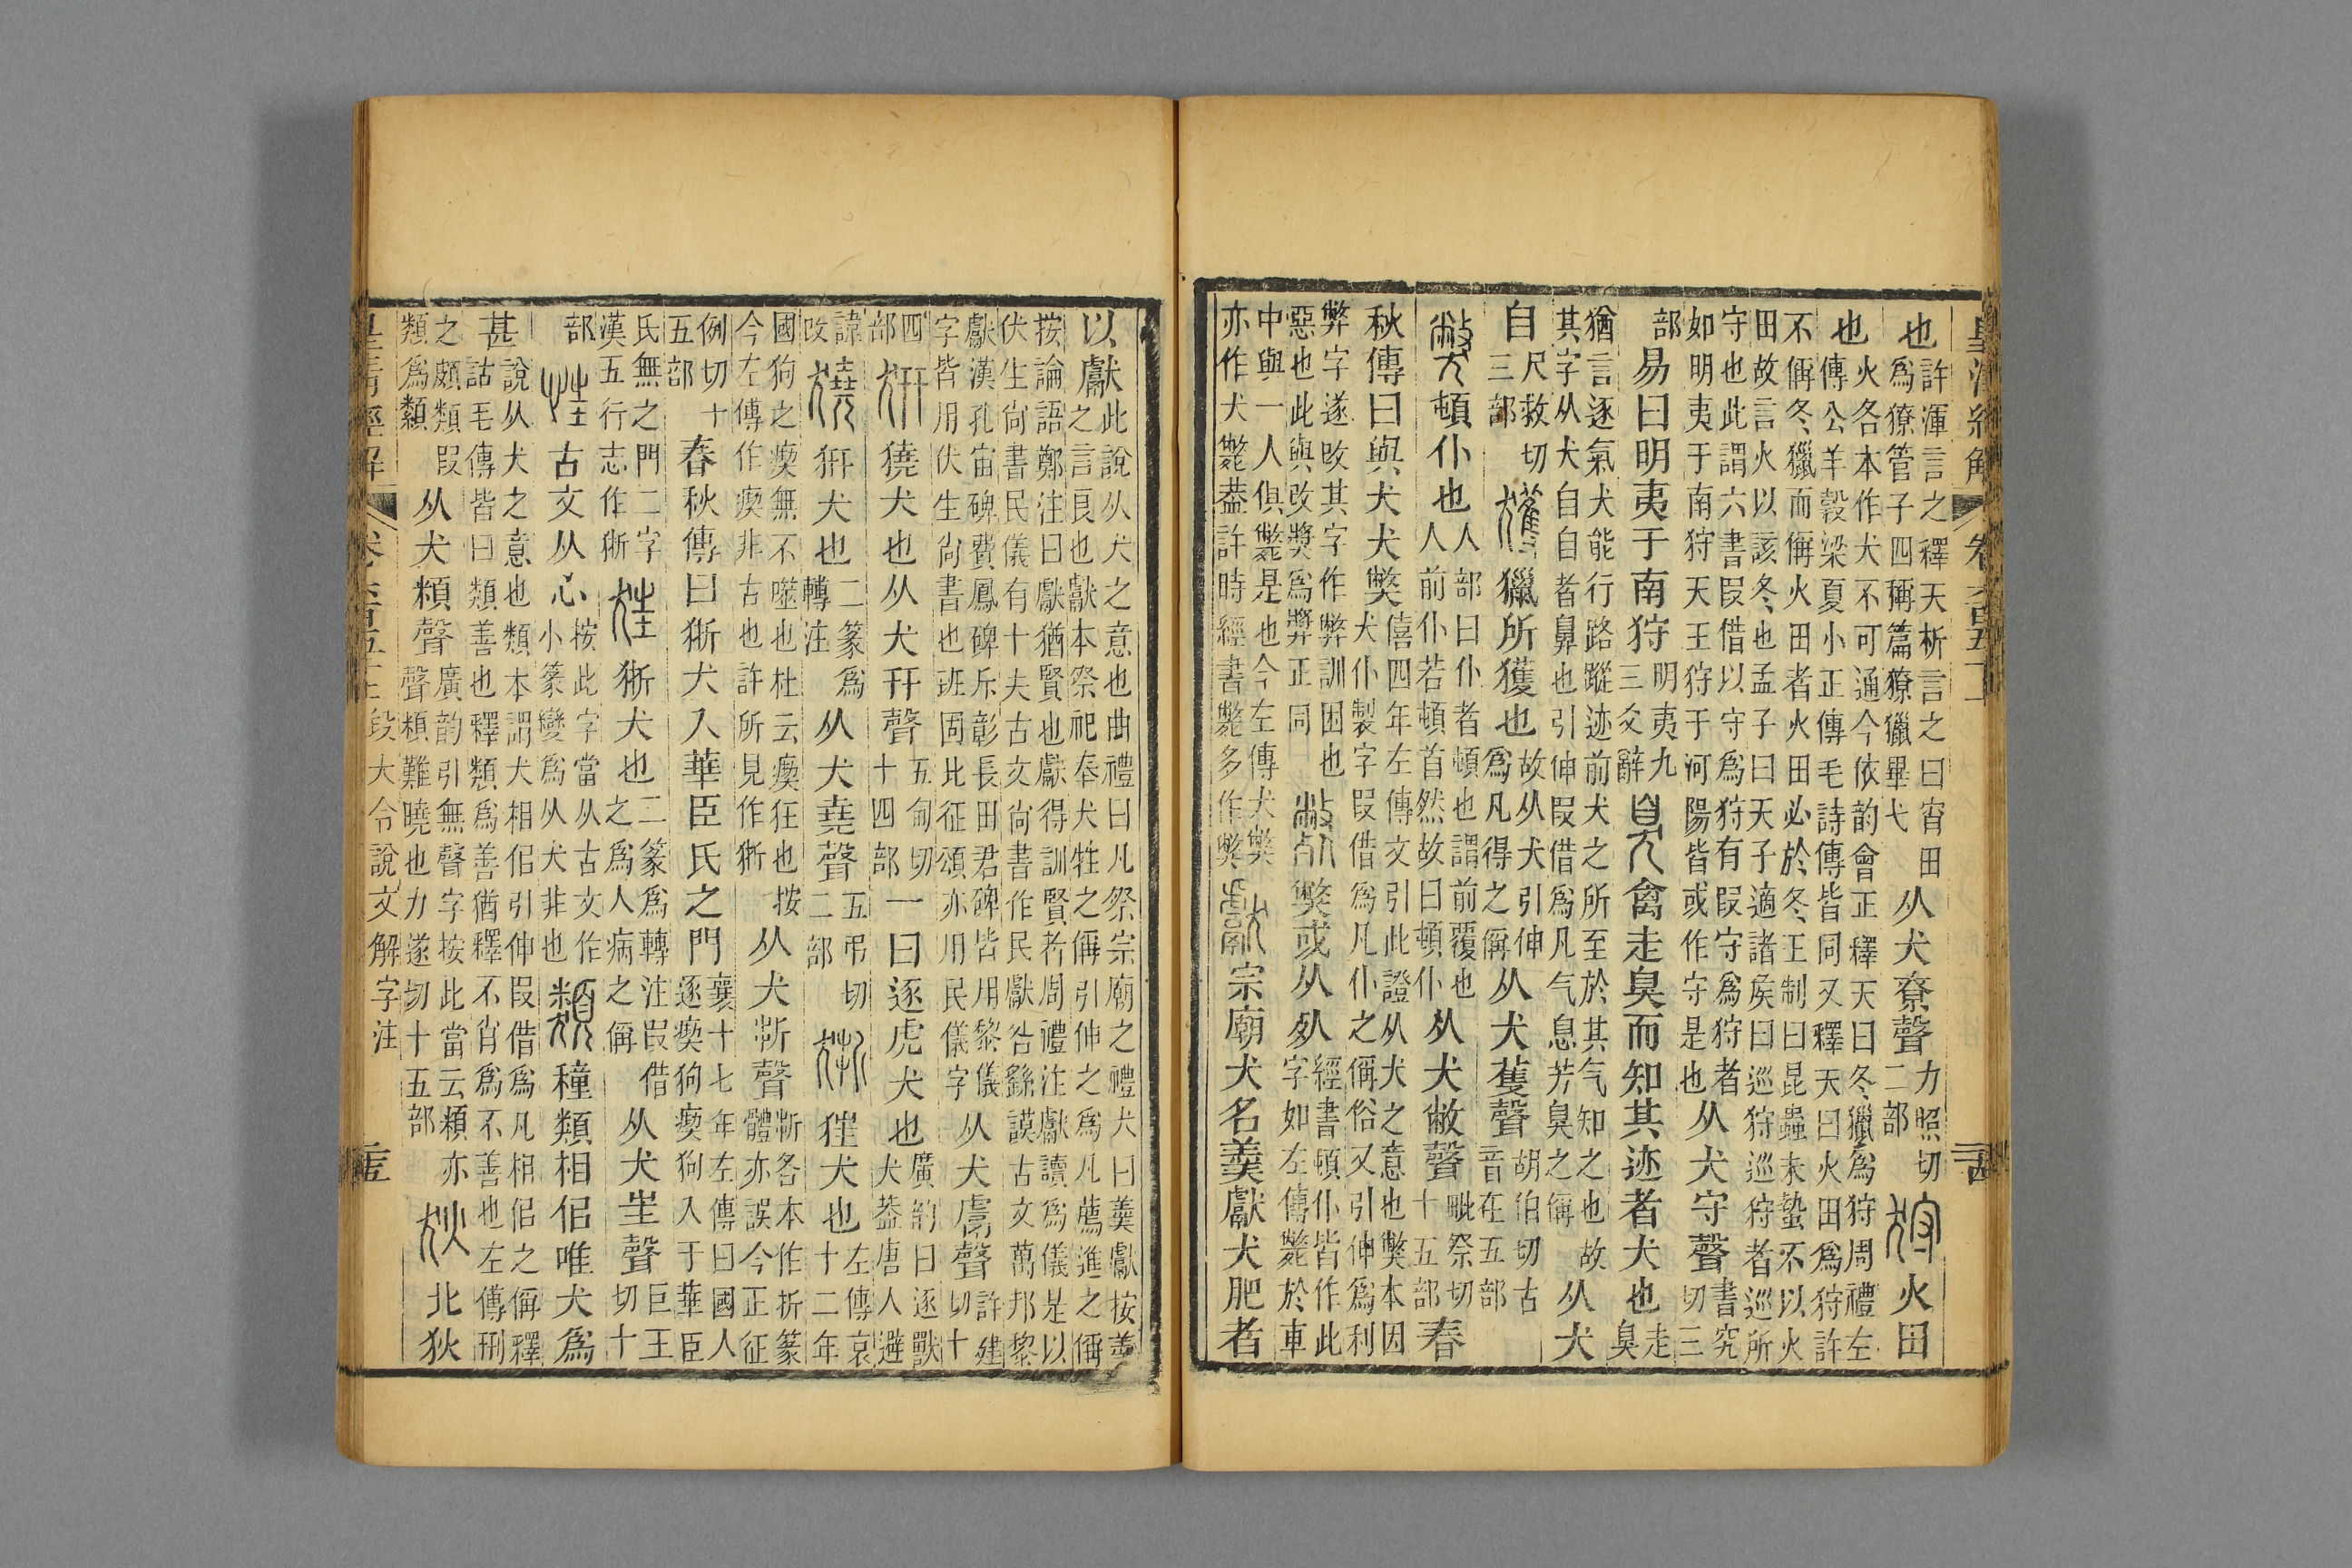 皇清經解 卷六百五十
也許渾言之釋天析言之曰宵田爲獠管子四稱篇獠獵畢弋从犬尞聲力照切二部狩火田
也火各本作犬不可通今依韵會正釋天曰冬獵爲狩周禮左傳公羊穀梁夏小正傳毛詩傳皆同又釋天曰火田爲狩許
不偁冬獵而偁火田者火田必於冬王制曰昆蟲未蟄不以火田故言火以該冬也孟子曰天子適諸矦曰巡狩巡狩者巡所
守也此謂六書叚借以守爲狩有叚守爲狩者如明夷于南狩天王狩于河陽皆或作守是也从犬守聲書究切三
部易曰明夷于南狩明夷九三爻辭臭禽走臭而知其迹者犬也走臭
猶言逐氣犬能行路蹤迹前犬之所至於其气知之也故其字从犬自自者鼻也引伸叚借爲凡气息芳臭之偁从犬
自尺救切三部獲獵所獲也故从犬引伸爲凡得之偁从犬蒦聲胡伯切古音在五部
獘頓仆也人部曰仆者頓也謂前覆也人前仆若頓首然故曰頓仆从犬敝聲毗祭切十五部春
秋傳曰與犬犬獘僖四年左傳文引此證从犬之意也獘本因犬仆製字叚借爲凡仆之偁俗又引伸爲利
弊字遂改其字作弊訓困也惡也此與改獎爲奬正同斃獘或从死經書頓仆皆作此字如左傳斃於車
中與一人俱斃是也今左傳犬獘亦作犬斃葢許時經書斃多作獘獻宗廟犬名羹獻犬肥者
以獻此說从犬之意也曲禮曰凡祭宗廟之禮犬曰羹獻按羹之言良也獻本祭祀奉犬牲之偁引伸之爲凡薦進之偁
按論語鄭注曰獻猶賢也獻得訓賢者周禮注獻讀爲儀是以伏生尚書民儀有十夫古文尚書作民獻咎繇謨古文萬邦黎
獻漢孔宙碑費鳳碑斥彰長田君碑皆用黎儀字皆用伏生尚書也班固北征頌亦用民儀字从犬鬳聲許建切十
四部𤜵獟犬也从犬幵聲五甸切十四部一曰逐虎犬也廣韵曰逐獸犬葢唐人避
諱改獟𤜵犬也二篆爲轉注从犬堯聲五弔切二部狾狂犬也左傳哀十二年
國狗之瘈無不噬也杜云瘈狂也今左傳作瘈非古也許所見作狾按从犬折聲㪿各本作折篆體亦誤今正征
例切十五部春秋傳曰狾犬入華臣氏之門襄十七年左傳曰國人逐瘈狗瘈狗入于華臣
氏無之門二字漢五行志作狾狂狾犬也二篆爲轉注叚借之爲人病之偁从犬㞷聲巨王切十
部忹古文从心按此字當从古文作小篆變爲从犬非也類種類相佀唯犬爲
甚說从犬之意也類本謂犬相佀引伸叚借爲凡相佀之偁釋詁毛傳皆曰類善也釋類爲善猶釋不肖爲不善也左傳刑
之頗纇叚類爲纇从犬頪聲廣韵引無聲字按此當云頪亦聲頪難曉也力遂切十五部狄北狄
皇清經解 卷六百五十 段大令說文解字注